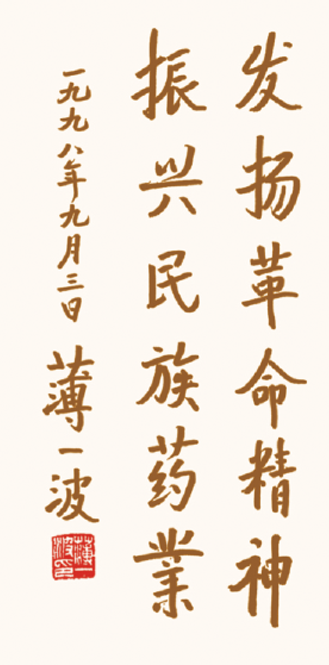 发扬革命精神
振兴民族药业
一九九八年九月三日
薄一波
薄一波印